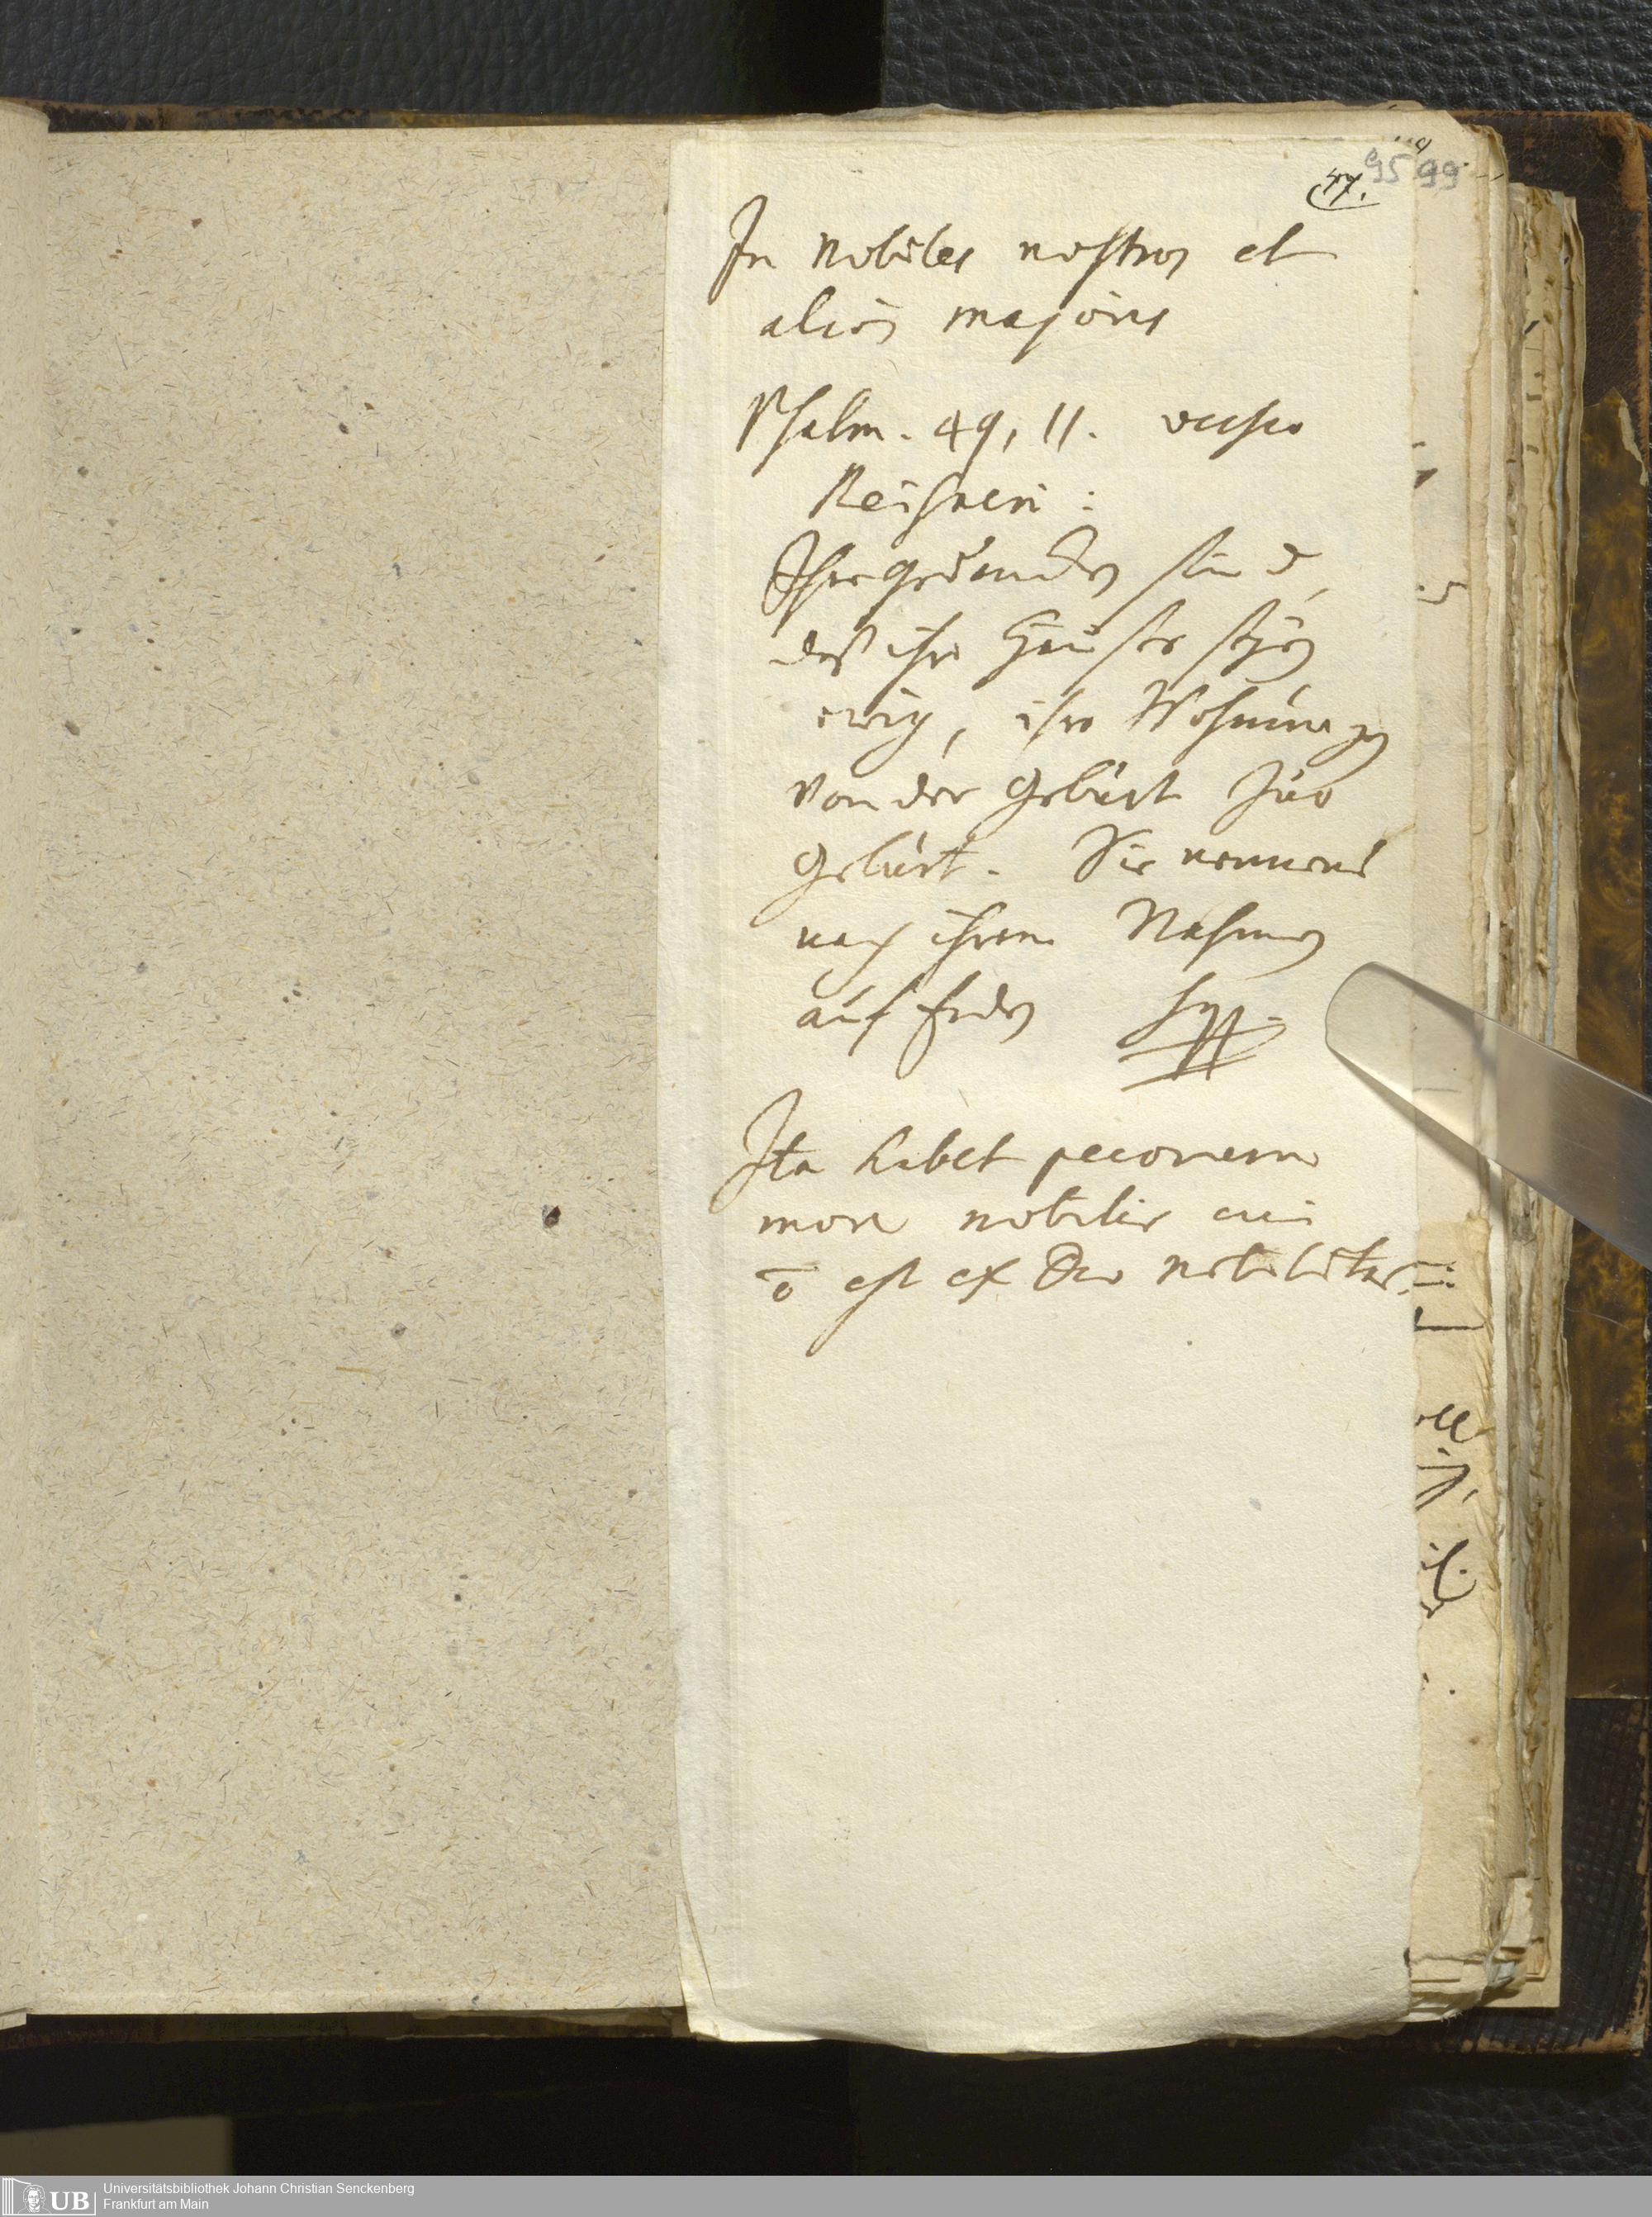 95 99
In Nobiles nostros et
alios majores
Psalm. 49, 11. versio
Reisneri:
Ihre gedancken sind,
daß ihre Häuser seyen
ewig, ihre Wohnungen
von der Geburt zur
Geburt. Sie nennens
nach ihrem Nahmen
auf Erden
Ita habet
more nobilis cui
ō est ex Deo nobilitas.
UB
Universitätsbibliothek Johann Christian Senckenberg
Frankfurt am Main